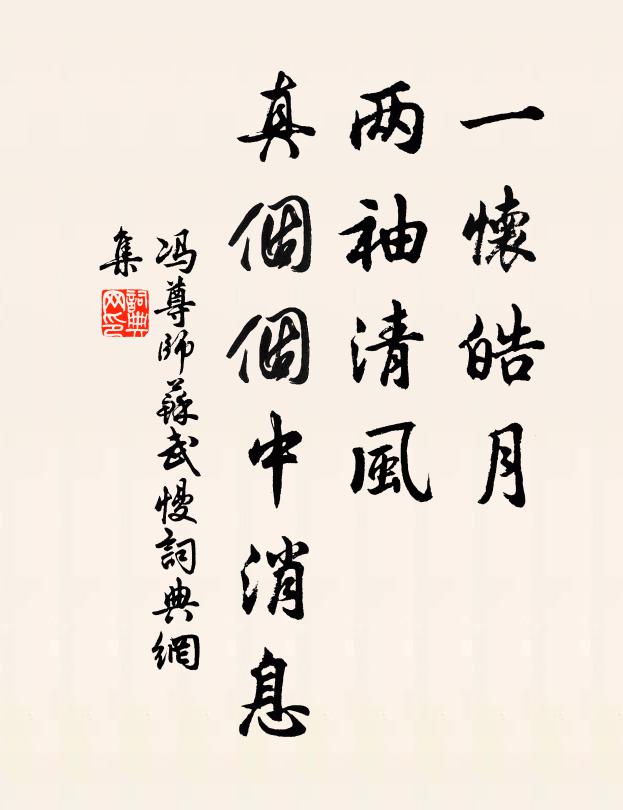 一懷皓月
两袖清風
真個個中消息
冯尊師蘇武慢詞典網
集
詞典
网印